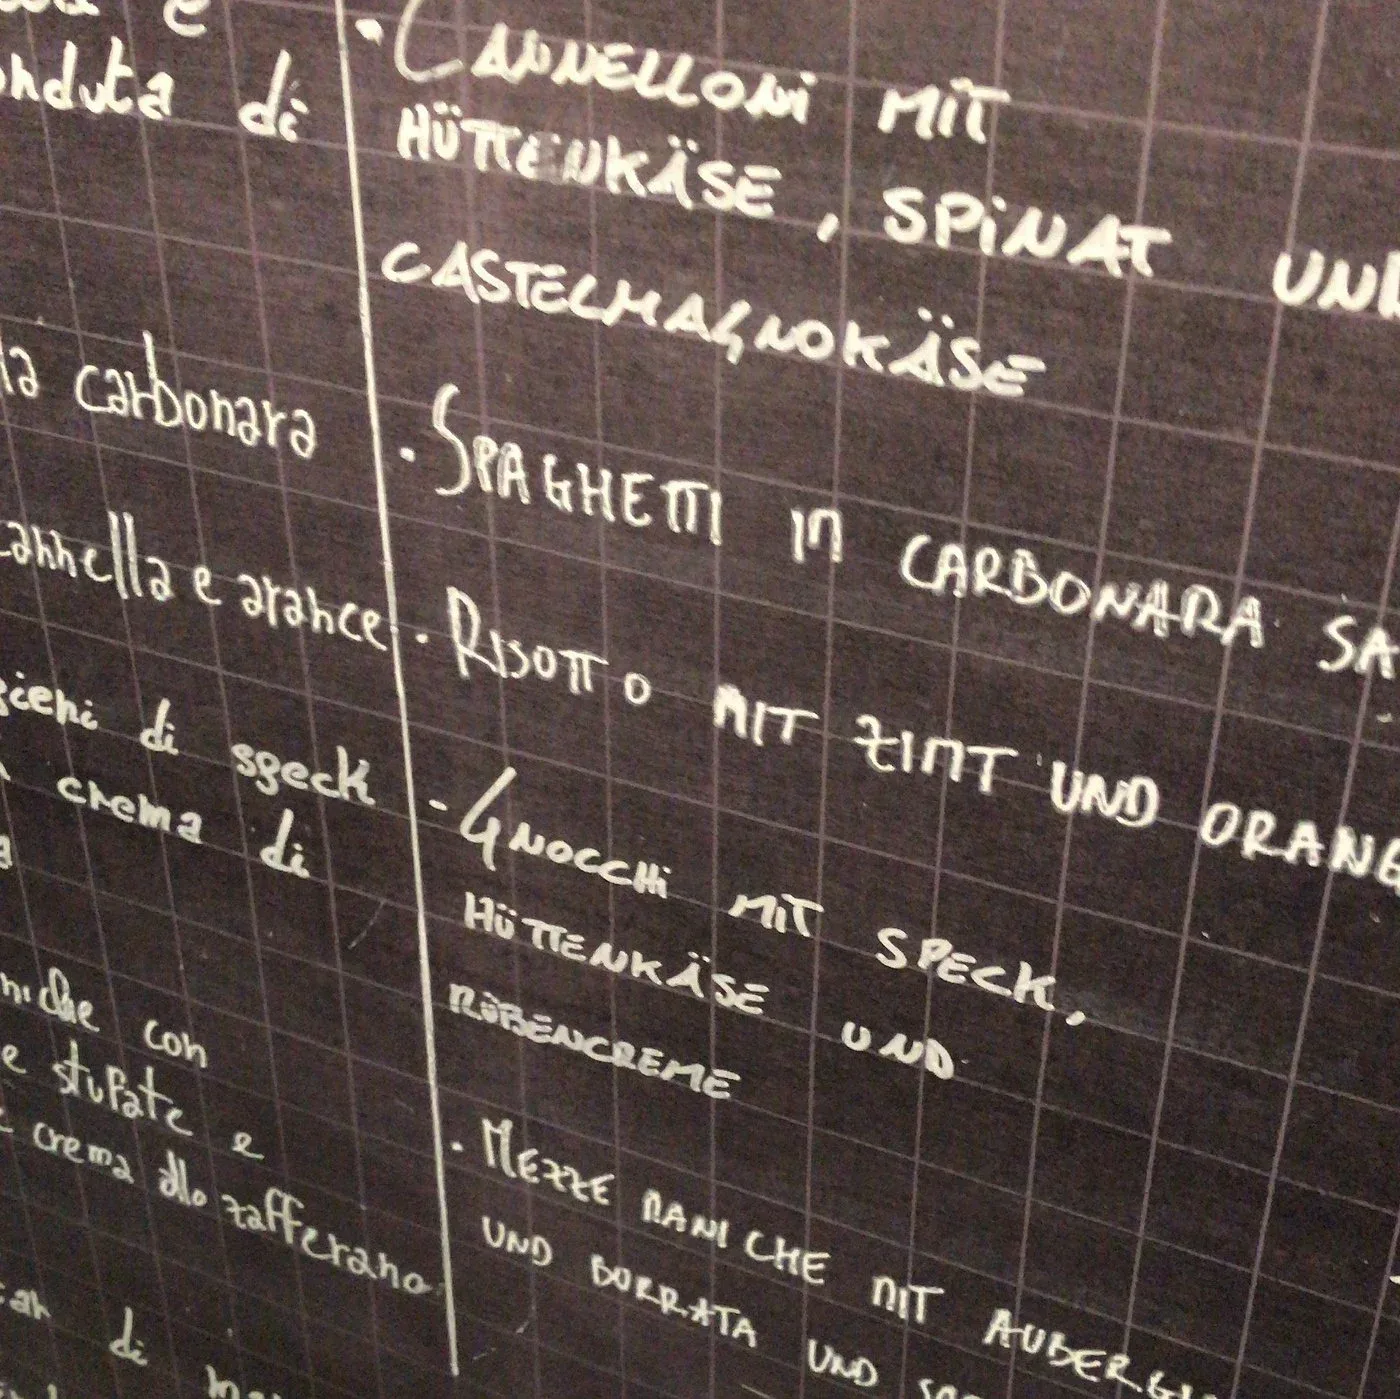 onduta di
la carbonara
cannella e arance
di speck
crema di
con
e stufate e
crema allo zafferano
di
· CANNELLONI MIT
HÜTTENKÄSE, SPINAT UND
CASTELMAGNOKÄSE
· SPAGHETTI IN CARBONARA SA
· RISOTTO MIT ZIMT UND ORANGE
- GNOCCHI MIT SPECK,
HÜTTENKÄSE UND
RÜBENCREME
· MEZZE MANICHE MIT AUBERGI
UND BURRATA UND